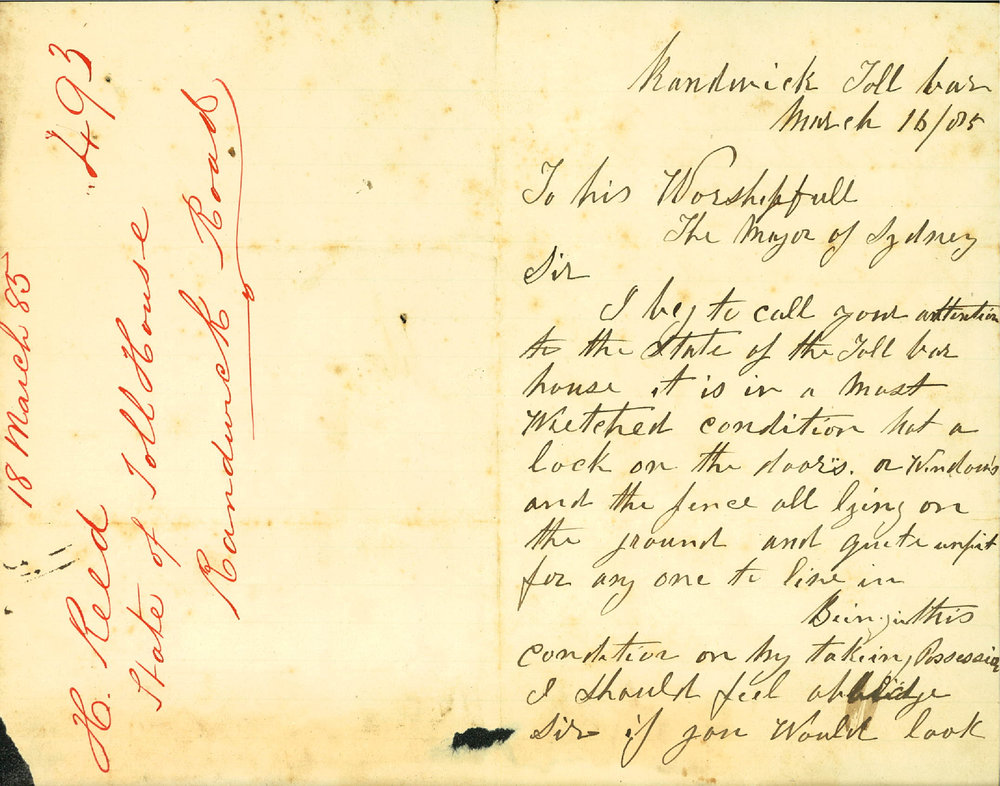 18 March 85
"493
H. Reed
State of Toll House
Randwick Road
Randwick Toll bar
March 16/85
To his Worshipfull
The Mayor of Sydney
Sir
I beg to call your attention
to the State of the Toll bar
house it is in a Most
Wretched condition not a
lock on the doors. or Windows
and the fence all lying on
the ground and quite unfit
for any one to live in
Being in this
condition on my takeing Possession
I should feel obblidge
Sir if you Would look